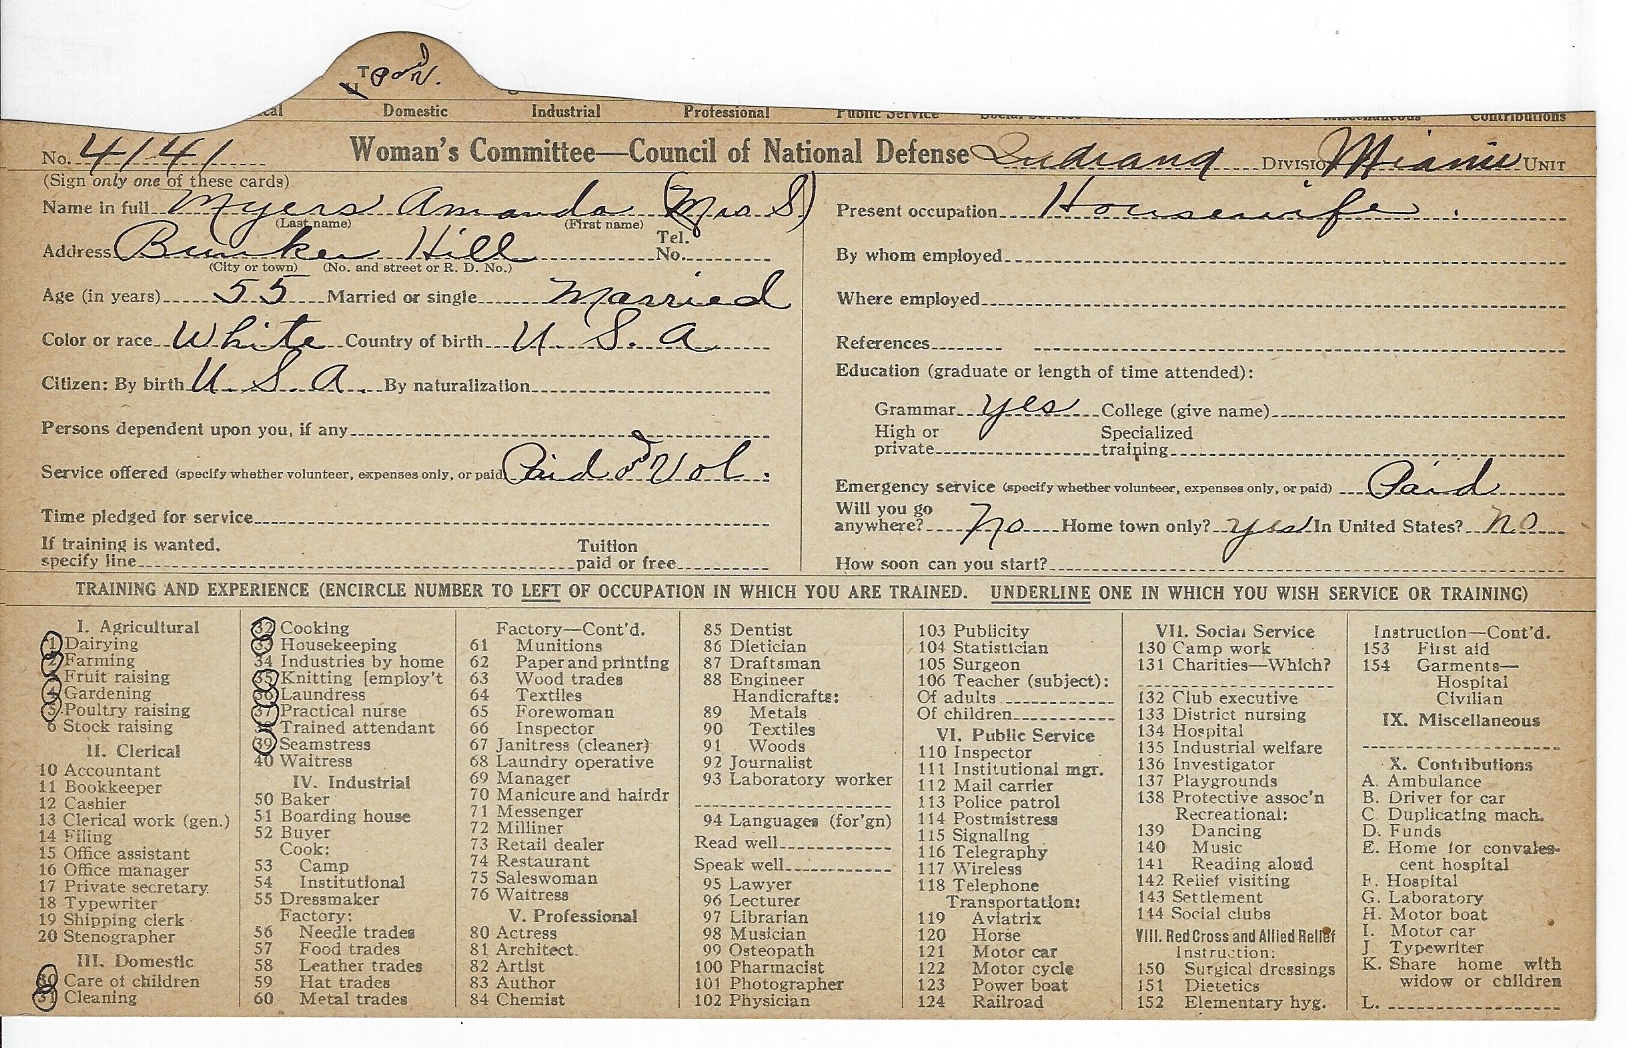 T
Pd. & V.
Domestic Industrial Professional Public Service Contributions
No. 4141 Woman's Committee—Council of National Defense Indiana Division Miami Unit
(Sign only one of these cards)
Name in full Myers Amanda (Mrs S)
(Last name) (First name)
Address Bunker Hill Tel. No.
(City or town) (No. and street or R. D. No.)
Age (in years) 55 Married or single Married
Color or race White Country of birth U. S. A
Citizen: By birth U. S. A. By naturalization
Persons dependent upon you, if any
Service offered (specify whether volunteer, expenses only, or paid) Paid & Vol.
Time pledged for service
If training is wanted, specify line Tuition paid or free
Present occupation Housewife.
By whom employed
Where employed
References
Education (graduate or length of time attended):
Grammar yes College (give name)
High or private Specialized training
Emergency service (specify whether volunteer, expenses only, or paid) Paid
Will you go anywhere? No Home town only? yes In United States? no
How soon can you start?
TRAINING AND EXPERIENCE (ENCIRCLE NUMBER TO LEFT OF OCCUPATION IN WHICH YOU ARE TRAINED. UNDERLINE ONE IN WHICH YOU WISH SERVICE OR TRAINING)
I. Agricultural
1 Dairying
2 Farming
3 Fruit raising
4 Gardening
5 Poultry raising
6 Stock raising
II. Clerical
10 Accountant
11 Bookkeeper
12 Cashier
13 Clerical work (gen.)
14 Filing
15 Office assistant
16 Office manager
17 Private secretary
18 Typewriter
19 Shipping clerk
20 Stenographer
III. Domestic
30 Care of children
31 Cleaning
32 Cooking
33 Housekeeping
34 Industries by home
35 Knitting [employ't
36 Laundress
37 Practical nurse
38 Trained attendant
39 Seamstress
40 Waitress
IV. Industrial
50 Baker
51 Boarding house
52 Buyer
Cook:
53 Camp
54 Institutional
55 Dressmaker
Factory:
56 Needle trades
57 Food trades
58 Leather trades
59 Hat trades
60 Metal trades
Factory—Cont'd.
61 Munitions
62 Paper and printing
63 Wood trades
64 Textiles
65 Forewoman
66 Inspector
67 Janitress (cleaner)
68 Laundry operative
69 Manager
70 Manicure and hairdr
71 Messenger
72 Milliner
73 Retail dealer
74 Restaurant
75 Saleswoman
76 Waitress
V. Professional
80 Actress
81 Architect.
82 Artist
83 Author
84 Chemist
85 Dentist
86 Dietician
87 Draftsman
88 Engineer
Handicrafts:
89 Metals
90 Textiles
91 Woods
92 Journalist
93 Laboratory worker
94 Languages (for'gn)
Read well
Speak well
95 Lawyer
96 Lecturer
97 Librarian
98 Musician
99 Osteopath
100 Pharmacist
101 Photographer
102 Physician
103 Publicity
104 Statistician
105 Surgeon
106 Teacher (subject):
Of adults
Of children
VI. Public Service
110 Inspector
111 Institutional mgr.
112 Mail carrier
113 Police patrol
114 Postmistress
115 Signaling
116 Telegraphy
117 Wireless
118 Telephone
Transportation:
119 Aviatrix
120 Horse
121 Motor car
122 Motor cycle
123 Power boat
124 Railroad
VII. Social Service
130 Camp work
131 Charities—Which?
132 Club executive
133 District nursing
134 Hospital
135 Industrial welfare
136 Investigator
137 Playgrounds
138 Protective assoc'n
Recreational:
139 Dancing
140 Music
141 Reading aloud
142 Relief visiting
143 Settlement
144 Social clubs
VIII. Red Cross and Allied Relief
Instruction:
150 Surgical dressings
151 Dietetics
152 Elementary hyg.
Instruction—Cont'd.
153 First aid
154 Garments—
Hospital
Civilian
IX. Miscellaneous
X. Contributions
A. Ambulance
B. Driver for car
C. Duplicating mach.
D. Funds
E. Home for convales-
cent hospital
F. Hospital
G. Laboratory
H. Motor boat
I. Motor car
J. Typewriter
K. Share home with
widow or children
L.